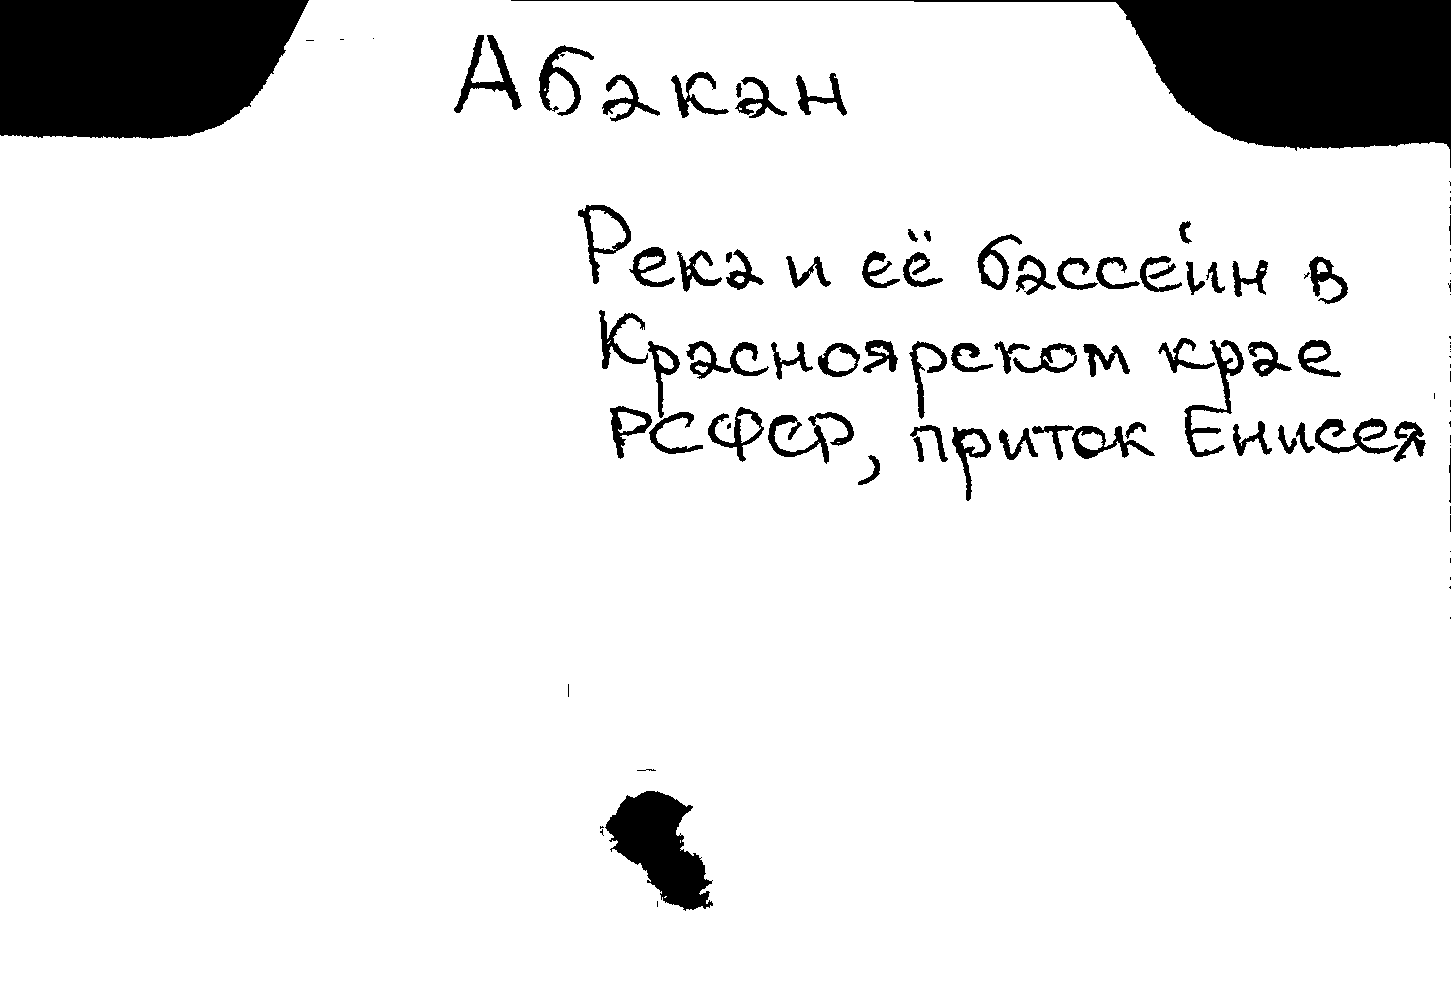 Абакан
Река и её бассейн в
Красноярском крае
РСФСР, приток Енисея